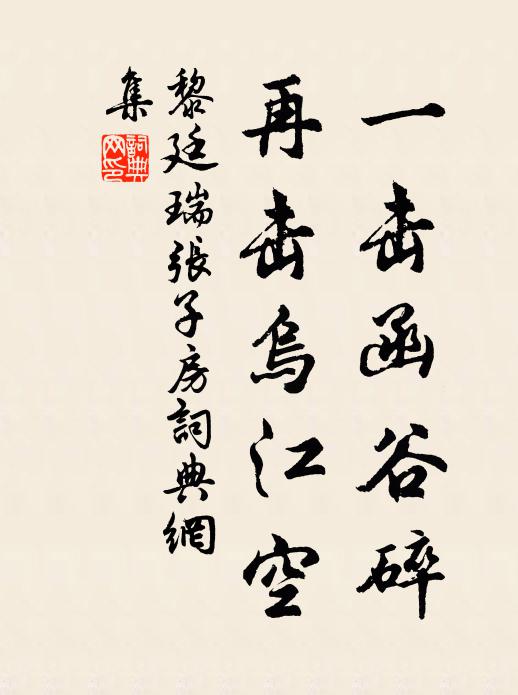 一击函谷碎
再击乌江空
黎廷瑞張子房詞典網
集
詞典
网印